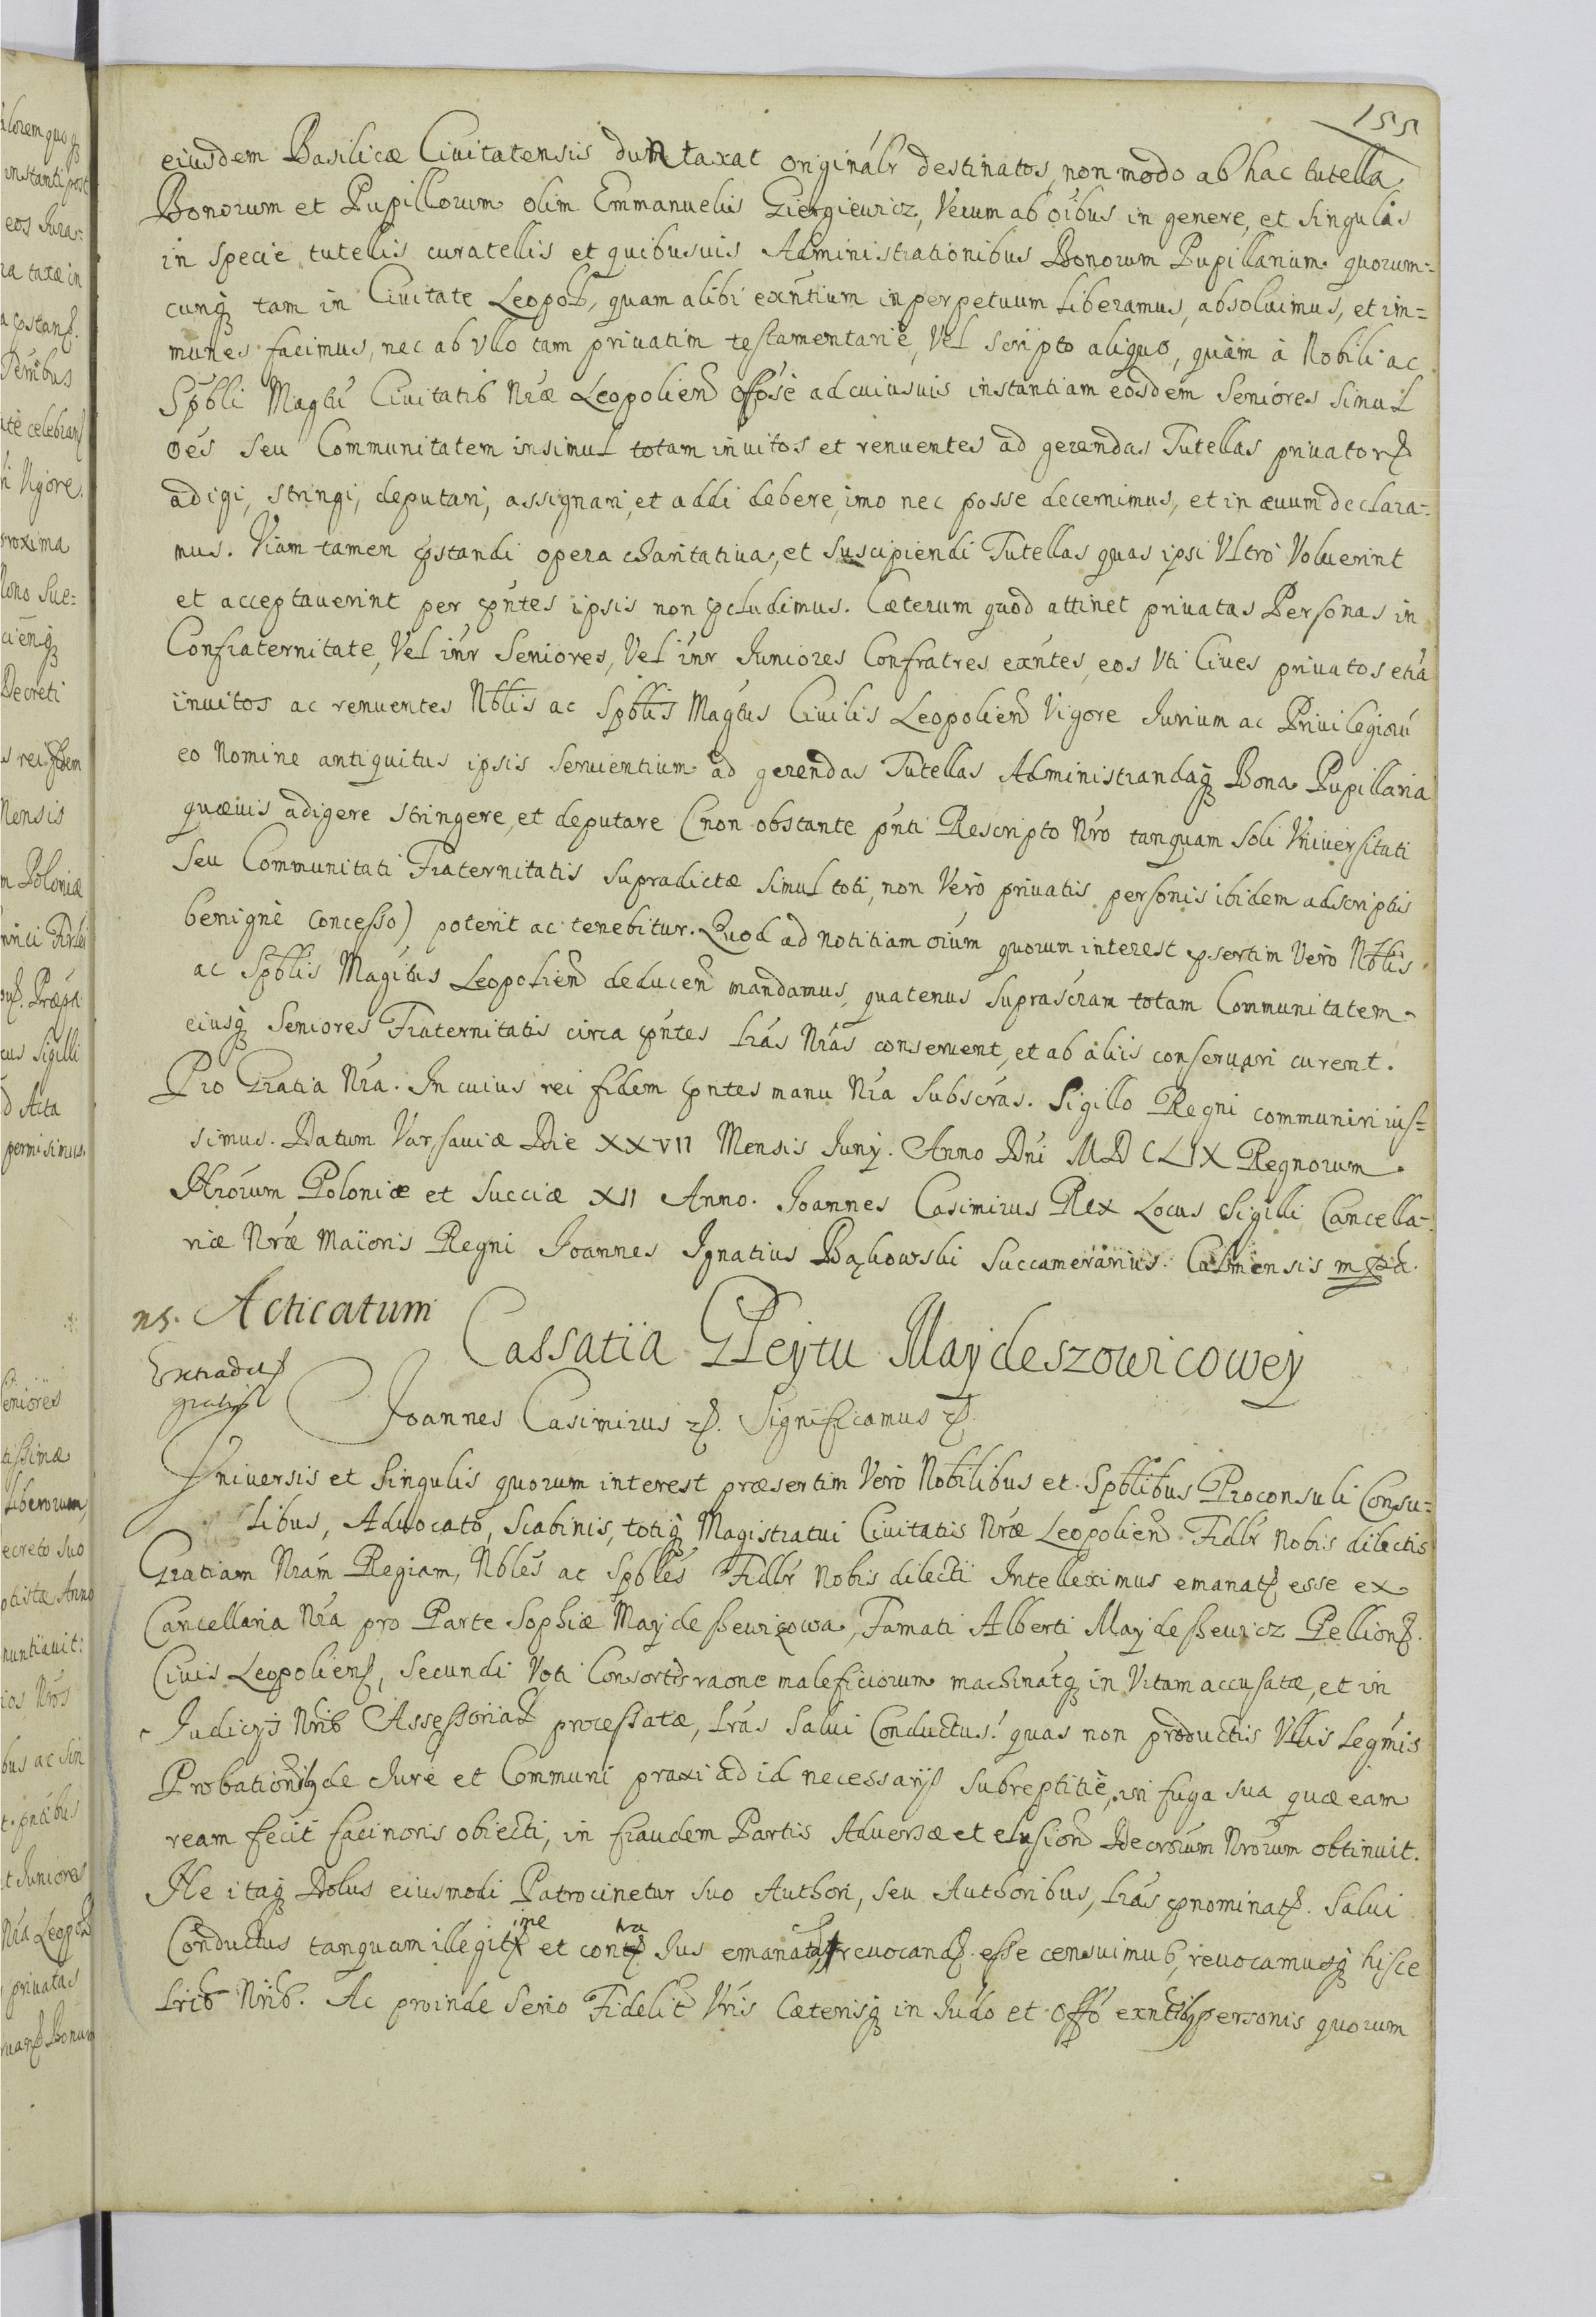 155
eiusdem Basilicæ Ciuitatensis duntaxat originálr destinatos, non modo ab hac tutella
Bonorum et Pupillorum olim Emmanuelis Giergieuicz, Verum ab oībus in genere, et singulis
in specie tutellis curatellis et quibusuis Administrationibus Bonorum Pupillarium quorum=
cunq tam in Ciuitate Leopol, quam alibi exńtium in perpetuum liberamus, absoluimus, et im=
munes facimus, nec ab vllo tam priuatim testamentarie, Vel scripto aliquo, quàm à Nobili ac
Spbli Magtu Ciuitatis Nræ Leopolien offose ad cuiusuis instantiam eosdem Seniores simul
oes seu Communitatem insimul totam inuitos et renuentes ad gerendas Tutellas priuator
adigi, stringi, deputari, assignari, et addi debere, imo nec posse decernimus, et in æuum declara=
mus. Viam tamen pstandi opera charitatiua, et suscipiendi Tutellas quas ipsi Vltro Voluerint
et acceptauerint per pntes ipsis non pcludimus. Cæterum quod attinet priuatas Personas in
Confraternitate, Vel inr Seniores, Vel inr Juniores Confratres exntes, eos Vti Ciues priuatos etiā
inuitos ac renuentes Nblis ac Spblis Magtus Ciuilis Leopolien Vigore Jurium ac Priuilegiorū
eo Nomine antiquitus ipsis seruientium ad gerendas Tutellas Administrandaq Bona Pupillaria
quæuis adigere stringere, et deputare (non obstante pnti Rescripto Nro tanquam soli Vniuersitati
seu Communitati Fraternitatis supradictæ simul toti, non Vero priuatis personis ibidem adscriptis
benignè concesso) poterit ac tenebitur. Quod ad notitiam oium quorum interest psertim Vero Nblis
ac Spblis Magtus Leopolien deducen mandamus, quatenus suprascram totam Communitatem
eiusq Seniores Fraternitatis circa pntes lrás Nrás conseruent, et ab alijs conseruari curent.
Pro Gratia Nra. In cuius rei fidem pntes manu Nra subscrás. Sigillo Regni communiri ius=
simus. Datum Varsauiæ Die XXVII Mensis Junij. Anno Dni MDCLIX Regnorum
Nrorum Poloniæ et Sueciæ XII Anno. Joannes Casimirus Rex Locus Sigilli Cancella=
riæ Nræ Maioris Regni Joannes Ignatius Bąkowski Succamerarius Culmensis mpp.
ns. Acticatum
Cassatia Gleytu Maydeszowicowey
Extradit
gratis
Joannes Casimirus &. Significamus &.
Vniuersis et singulis quorum interest præsertim Vero Nobilibus et Spblibus Proconsuli Consu=
libus, Aduocato, Scabinis, totiq Magistratui Ciuitatis Nræ Leopolien Fidlr Nobis dilectis
Gratiam Nram Regiam, Nbles ac Spbles Fidlr Nobis dilecti Intelleximus emanat esse ex
Cancellaria Nra pro Parte Sophiæ Maydeszewiczowa, Famati Alberti Maydeszewicz Pellion.
Ciuis Leopolien, Secundi Voti Consortis raone maleficiorum machinatq in Vitam accusatæ, et in
Judicijs Nrib Assessorial processatæ, lrás salui Conductus. quas non productis Vllis legmis
Probationib de Jure et Communi praxi ad id necessarijs subreptitiè, in fuga sua quæ eam
ream fecit facinoris obiecti, in fraudem Partis Aduersæ et elusion Decrorum Nrorum obtinuit.
Ne itaq Dolus eiusmodi Patrocinetur suo Authori, seu Authoribus, lrás pnominat. Salui
Conductus tanquam illegitime et contra Jus emanatas reuocand esse censuimus, reuocamusq hisce
lrib Nrib. Ac proinde serio Fidelit Vris Cæterisq in Judo et offo exntib personis quorum